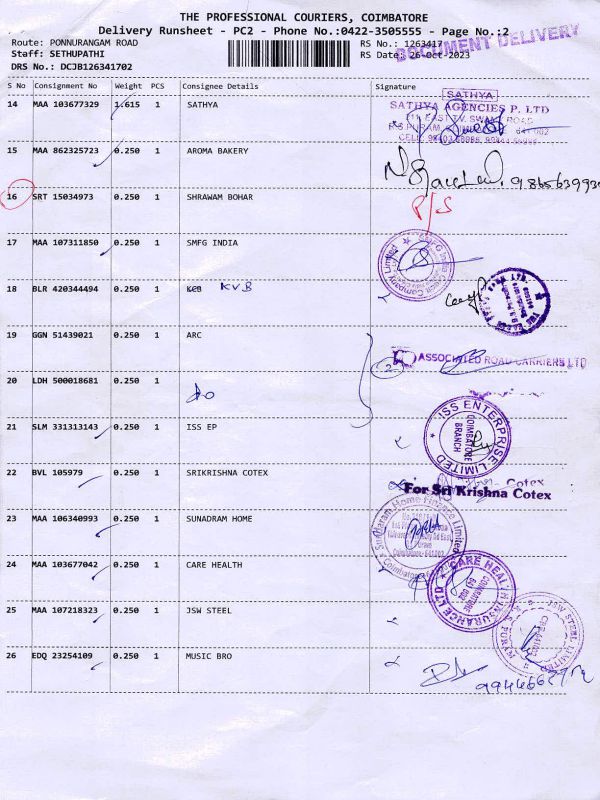 THE PROFESSIONAL COURIERS, COIMBATORE
Delivery Runsheet - PC2 - Phone No.:0422-3505555 - Page No.:2
Route: PONNURANGAM ROAD
RS No.: 1263417
DOCUMENT DELIVERY
Staff: SETHUPATHI
RS Date: 26-Oct-2023
DRS No.: DCJB126341702
S No Consignment No Weight PCS Consignee Details Signature
14 MAA 103677329 1.615 1 SATHYA
SATHYA
SATHYA AGENCIES P. LTD
15 MAA 862325723 0.250 1 AROMA BAKERY
16 SRT 15034973 0.250 1 SHRAWAM BOHAR
P/S
17 MAA 107311850 0.250 1 SMFG INDIA
18 BLR 420344494 0.250 1 KCB KVB
19 GGN 51439021 0.250 1 ARC
2 ASSOCIATED ROAD CARRIERS LTD
20 LDH 500018681 0.250 1
do
21 SLM 331313143 0.250 1 ISS EP
ISS ENTERPRISE LIMITED
COIMBATORE
BRANCH
22 BVL 105979 0.250 1 SRIKRISHNA COTEX
For Sri Krishna Cotex
23 MAA 106340993 0.250 1 SUNADRAM HOME
Sundaram Home Finance Limited
Coimbatore
24 MAA 103677042 0.250 1 CARE HEALTH
CARE HEALTH INSURANCE LTD
COIMBATORE
25 MAA 107218323 0.250 1 JSW STEEL
JSW STEEL LIMITED
26 EDQ 23254109 0.250 1 MUSIC BRO